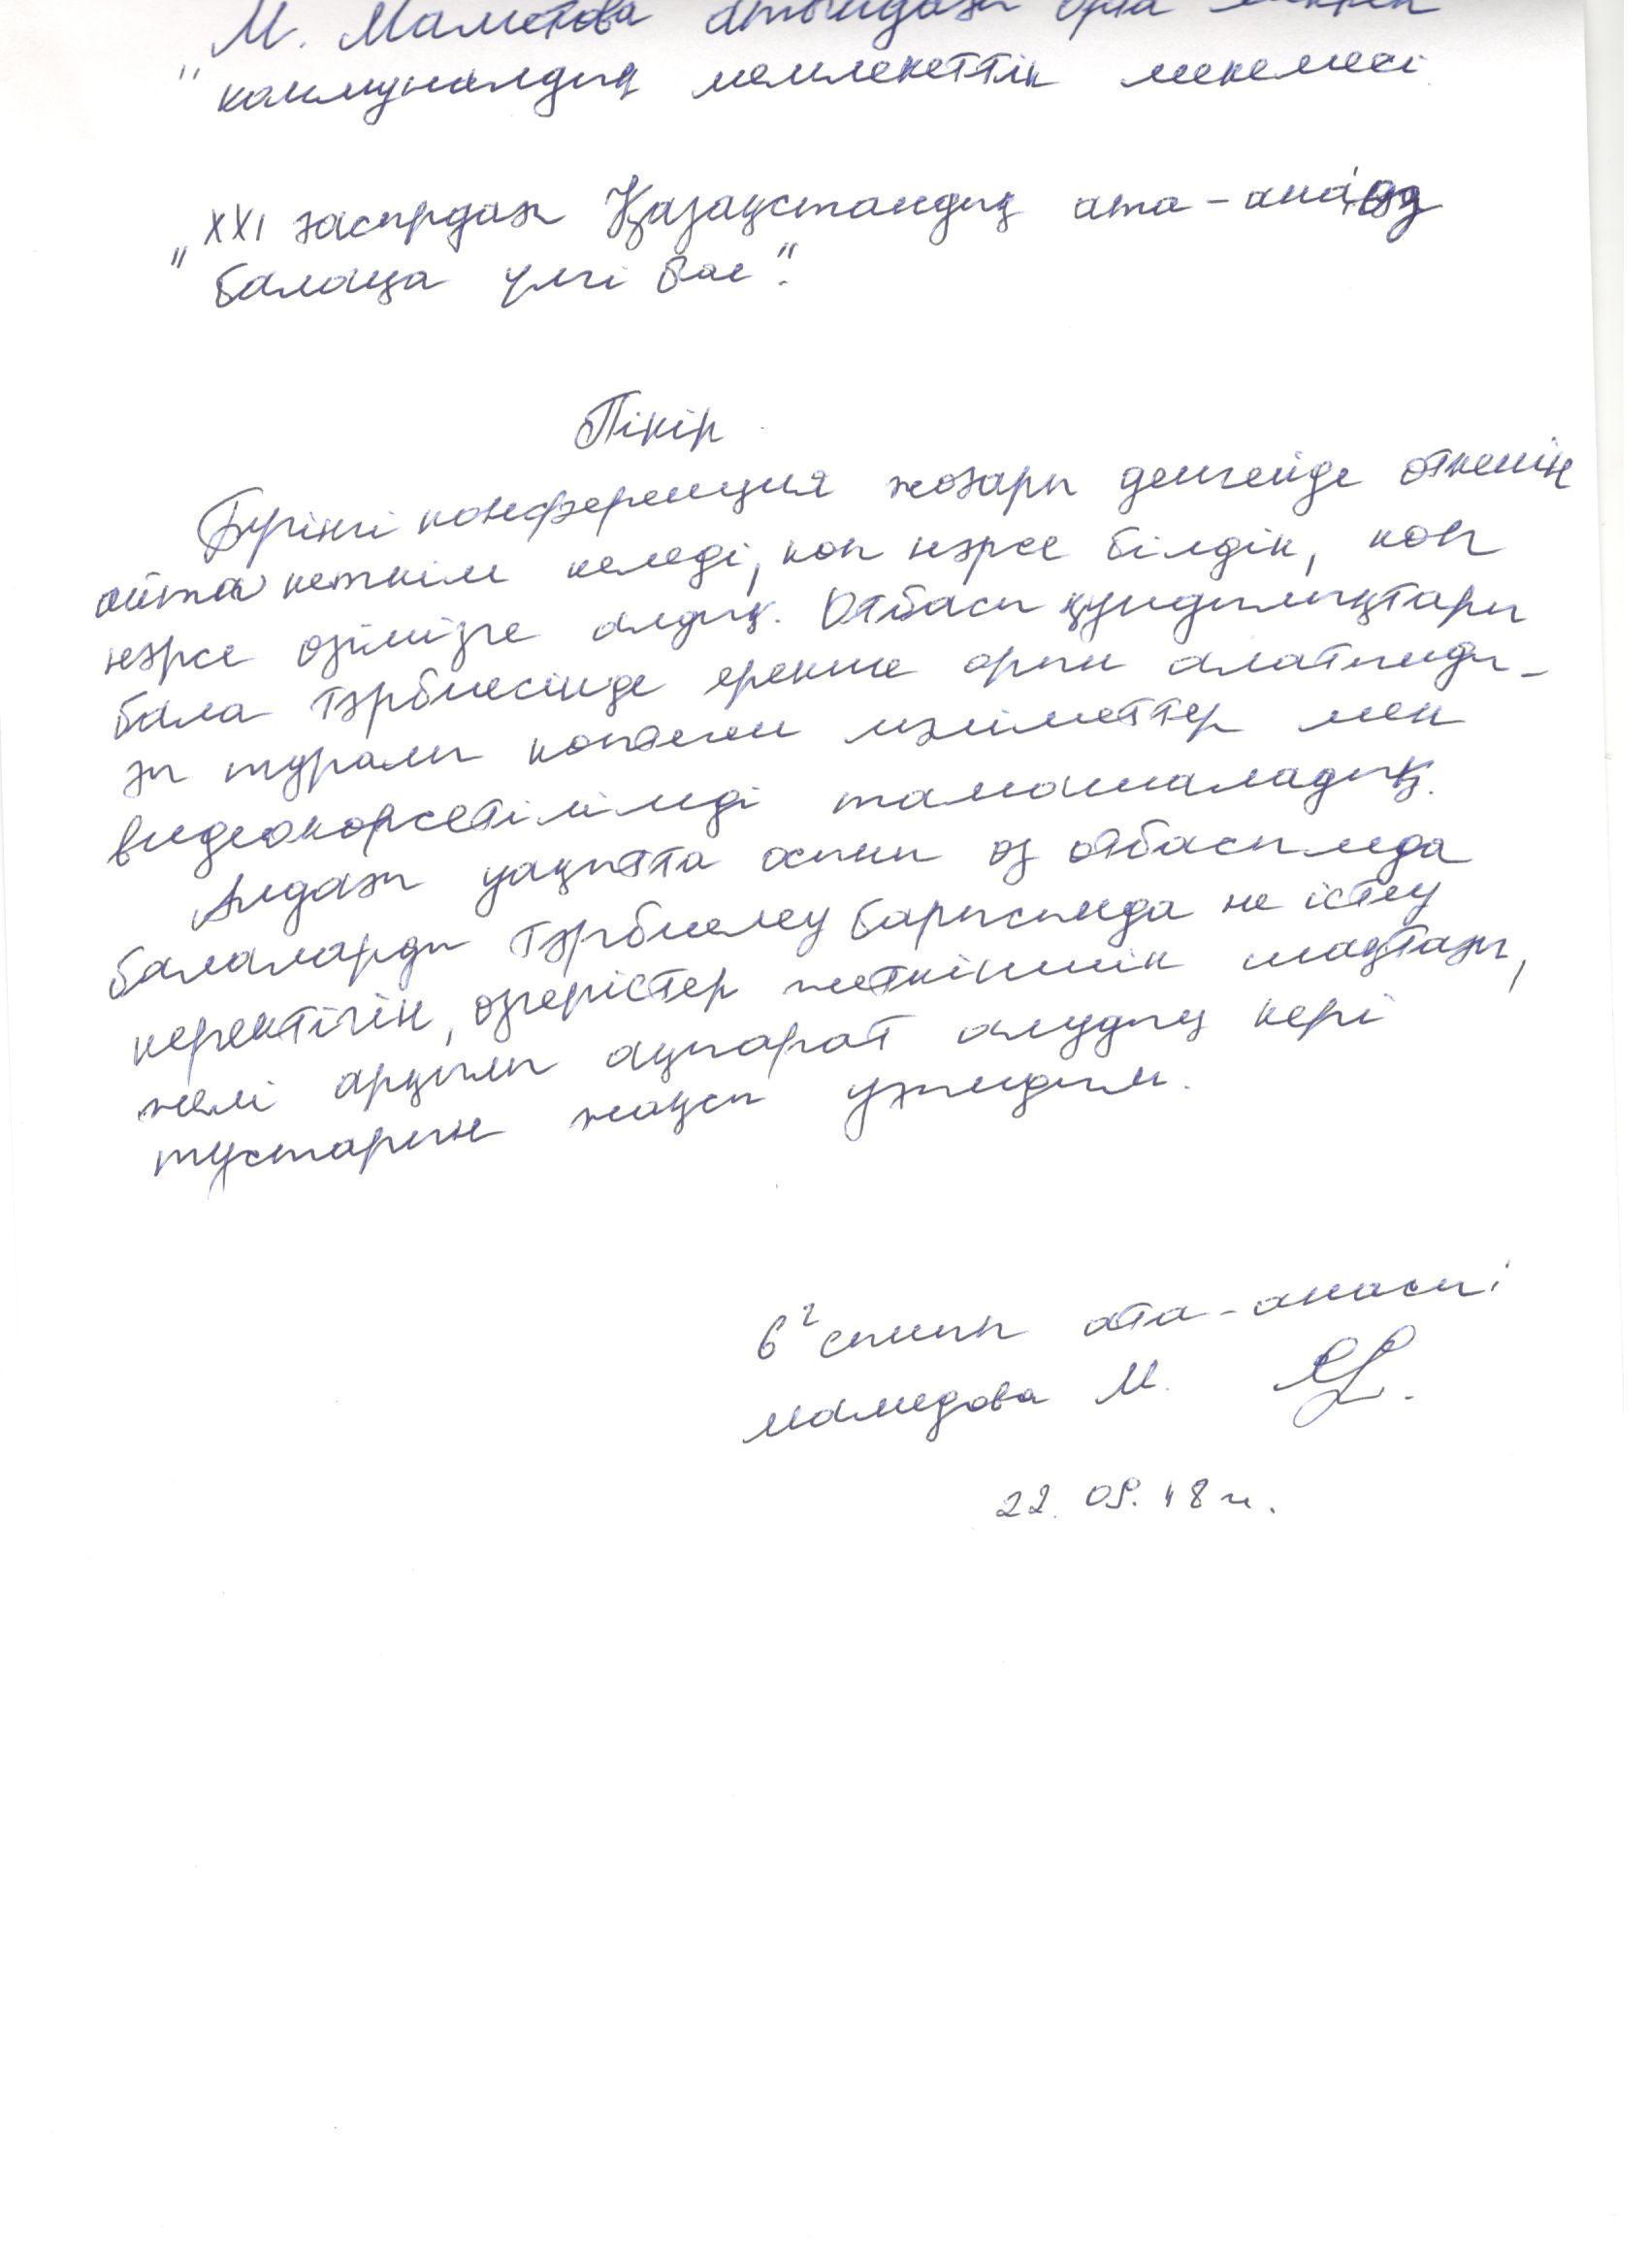 М. Маметова атындағы орта мектеп
" коммуналдық мемлекеттік мекемесі
„ XXI ғасырдағы Қазақстандық ата-ана: өз
балаңа үлгі бол".
Пікір
Бүгінгі конференция жоғары деңгейде өткенін
айта кеткім келеді, көп нәрсе білдік, көп
нәрсе өзімізге алдық. Отбасы құндылықтары
бала тәрбиесінде ерекше орын алатынды-
ғы туралы көптеген мәліметтер мен
видеокөрсетілімді тамашаладық.
Алдағы уақытта осыны өз отбасымда
балаларды тәрбиелеу барысында не істеу
керектігін, өзгерістер жеткіншік шақтағы,
желі арқылы ақпарат алудың кері
тұстарын жақсы ұғындым.
6г сынып ата-анасы:
мамедова М.
22. 09. 18 ж.